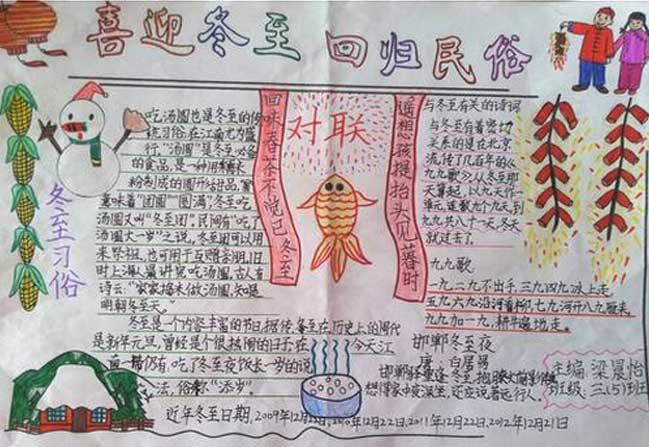 喜迎冬至 回归民俗
冬至习俗
吃汤圆也是冬至的传
统习俗,在江南尤为盛
行。"汤圆"是冬至必备
的食品,是一种用糯米
粉制成的圆形甜品,"圆"
意味着"团圆""圆满",冬至吃
汤圆又叫"冬至团"。民间有"吃了
汤圆大一岁"之说。冬至团可以用
来祭祖,也可用于互赠亲朋。旧
时上海人最讲究吃汤团。古人有
诗云:"家家捣米做汤圆,知是
明朝冬至天。"
冬至是一个内容丰富的节日,据传,冬至在历史上的周代
是新年元旦,曾经是个很热闹的日子。在今天江
南一带仍有吃了冬至夜饭长一岁的说
法,俗称"添岁"。
回味春茶不觉已冬至
对联
遥想孩提抬头见暮时
与冬至有关的诗词
与冬至有着密切
关系的是在北京
流传了几百年的《
九九歌》。从冬至那
天算起,以九天作一
单元,连数九个九天,到
九九共八十一天,冬天
就过去了。
九九歌
一九二九不出手,三九四九冰上走,
五九六九沿河看柳,七九河开八九雁来,
九九加一九,耕牛遍地走。
邯郸冬至夜
唐 白居易
邯郸驿里逢冬至,抱膝灯前影伴身。
想得家中夜深坐,还应说着远行人。
主编:梁晨怡
班级:三(5)班
近年冬至日期,2009年12月22日,2010年12月22日,2011年12月22日,2012年12月21日